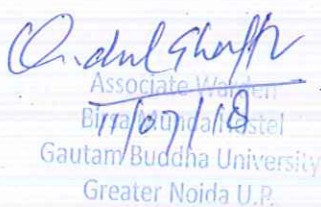 Associate Warden
11/07/18
Birsa Munda Hostel
Gautam Buddha University
Greater Noida U.P.